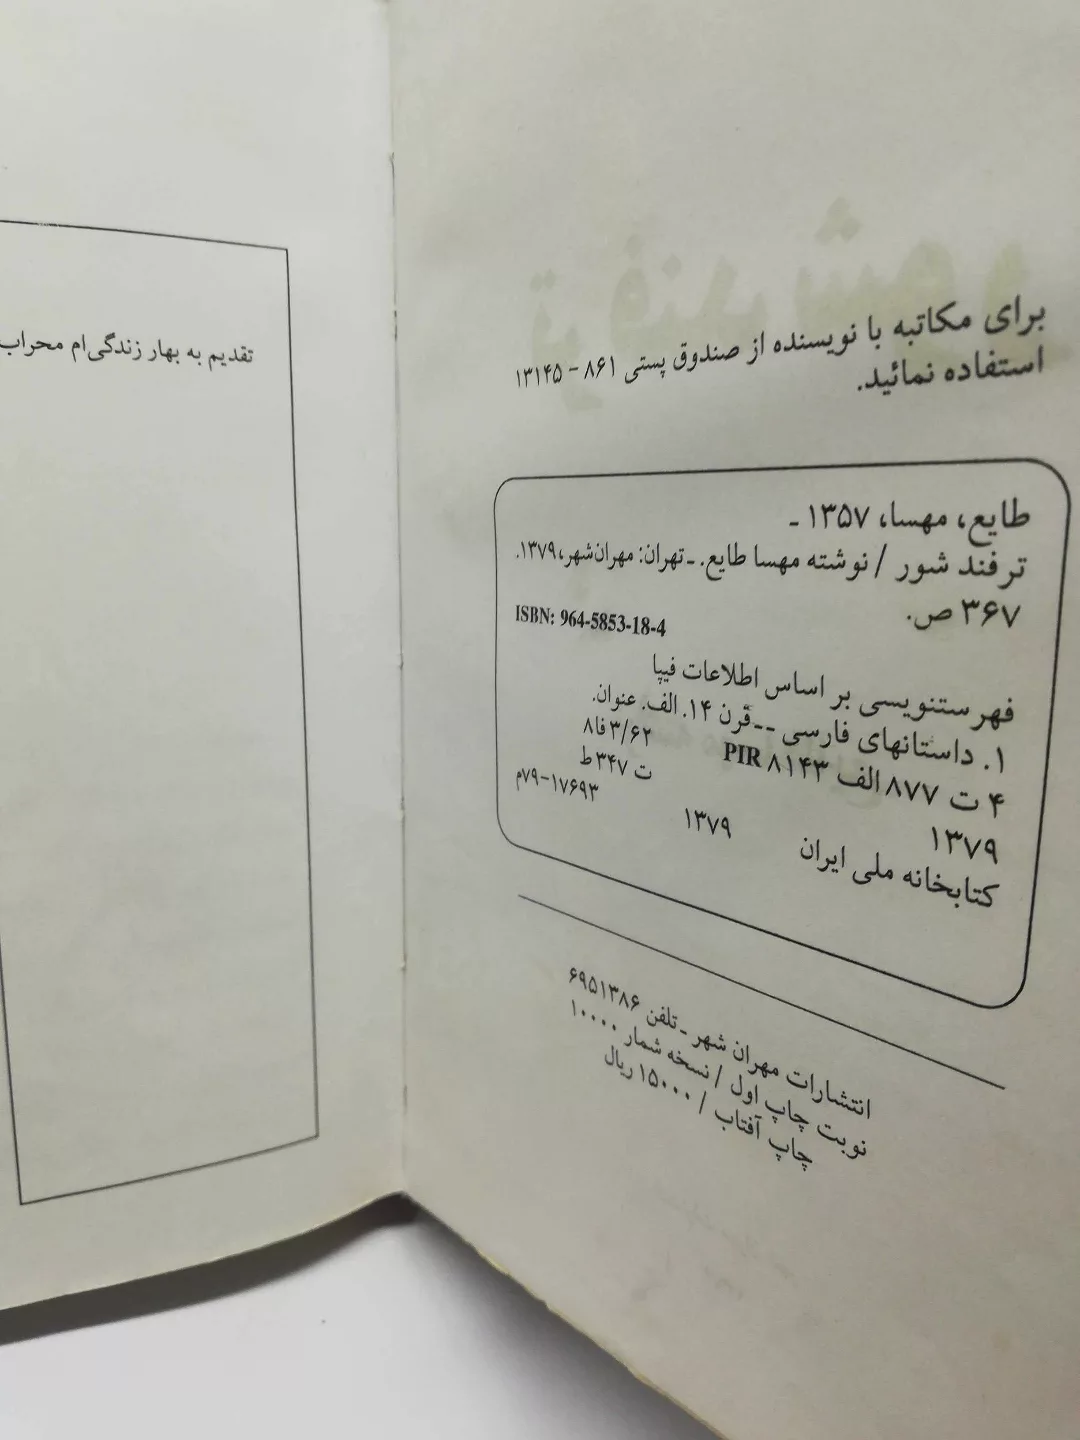 برای مکاتبه با نویسنده از صندوق پستی ۸۶۱ - ۱۳۱۴۵
استفاده نمائید.
طایع، مهسا، ۱۳۵۷ ـ
ترفند شور / نوشته مهسا طایع. ـ تهران: مهران‌شهر، ۱۳۷۹.
۳۶۷ ص.
ISBN: 964-5853-18-4
فهرستنویسی بر اساس اطلاعات فیپا
۱. داستانهای فارسی -- قرن ۱۴. الف. عنوان.
۴ ت ۸۷۷ الف PIR ۸۱۴۳ ۳/۶۲ فا۸
۱۳۷۹ ت ۳۴۷ ط
۱۳۷۹
کتابخانه ملی ایران ۱۷۶۹۳-۷۹م
انتشارات مهران شهر ـ تلفن ۶۹۵۱۳۸۶
نوبت چاپ اول / نسخه شمار ۱۰۰۰۰
چاپ آفتاب / ۱۵۰۰۰ ریال
تقدیم به بهار زندگی‌ام محراب